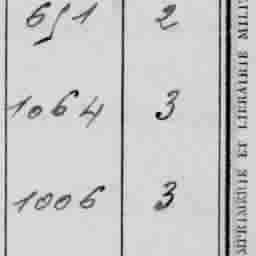 651 2
1064 3
1006 3
MPRIMERIE ET LIBRAIRIE MILI